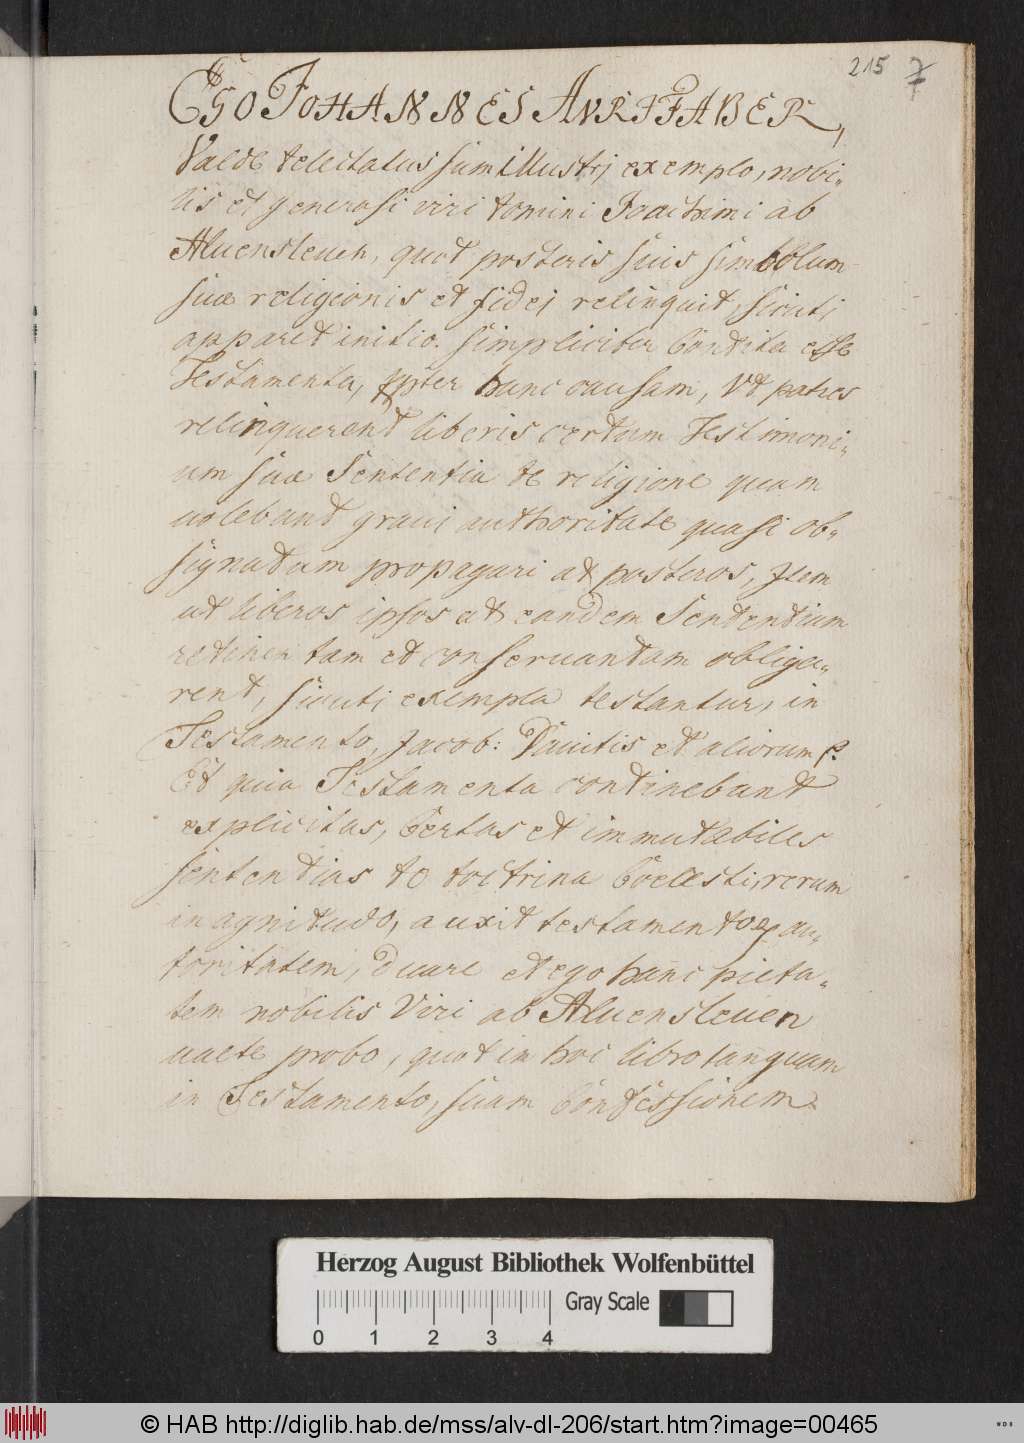 215 7
EGO JOHANNES AVRIFABER,
Valde delectatus sum illustrj exemplo, nobi-
lis et generosi viri domini Joachimi ab
Aluensleuen, quod posteris suis simbolum
suæ religionis et fidej relinquit, sicutj
apparet initio. Simpliciter Condita esse
Testamenta, ꝓpter hanc causam, Vt patres
relinquerent liberis certum Testimoni-
um suæ Sententiæ de religione quam
uolebant graui authoritate quasi ob-
signatam propagari ad posteros, Item
ut liberos ipsos ad eandem Sententiam
retinendam et conseruandam obliga-
rent, sicutj exempla testantur, in
Testamento, Jacob: Dauitis et aliorum p.
Et quia Testamenta continebant
explicitas, Certas et immutabiles
sententias de doctrina Coelesti, rerum
magnitudo, auxit testamentoꝝ au-
toritatem, Quare et ego hanc pieta-
tem nobilis Viri ab Aluensleuen
ualde probo, quod in hoc libro tanquam
in Testamento, suam Confessionem
Herzog August Bibliothek Wolfenbüttel
0 1 2 3 4 Gray Scale
© HAB http://diglib.hab.de/mss/alv-dl-206/start.htm?image=00465